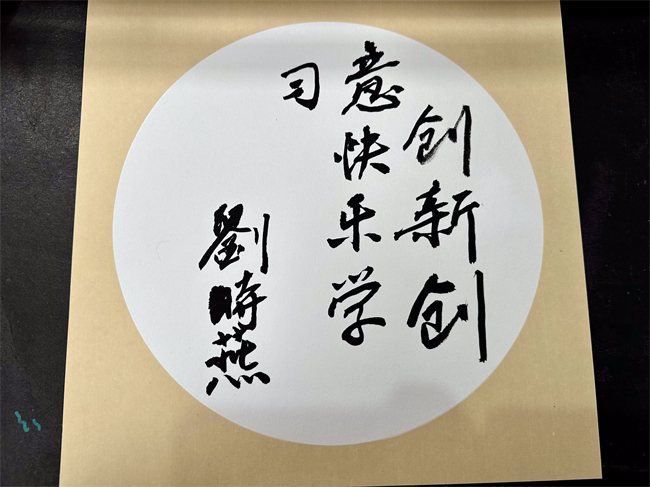 创新创
意快乐学
习
劉時燕